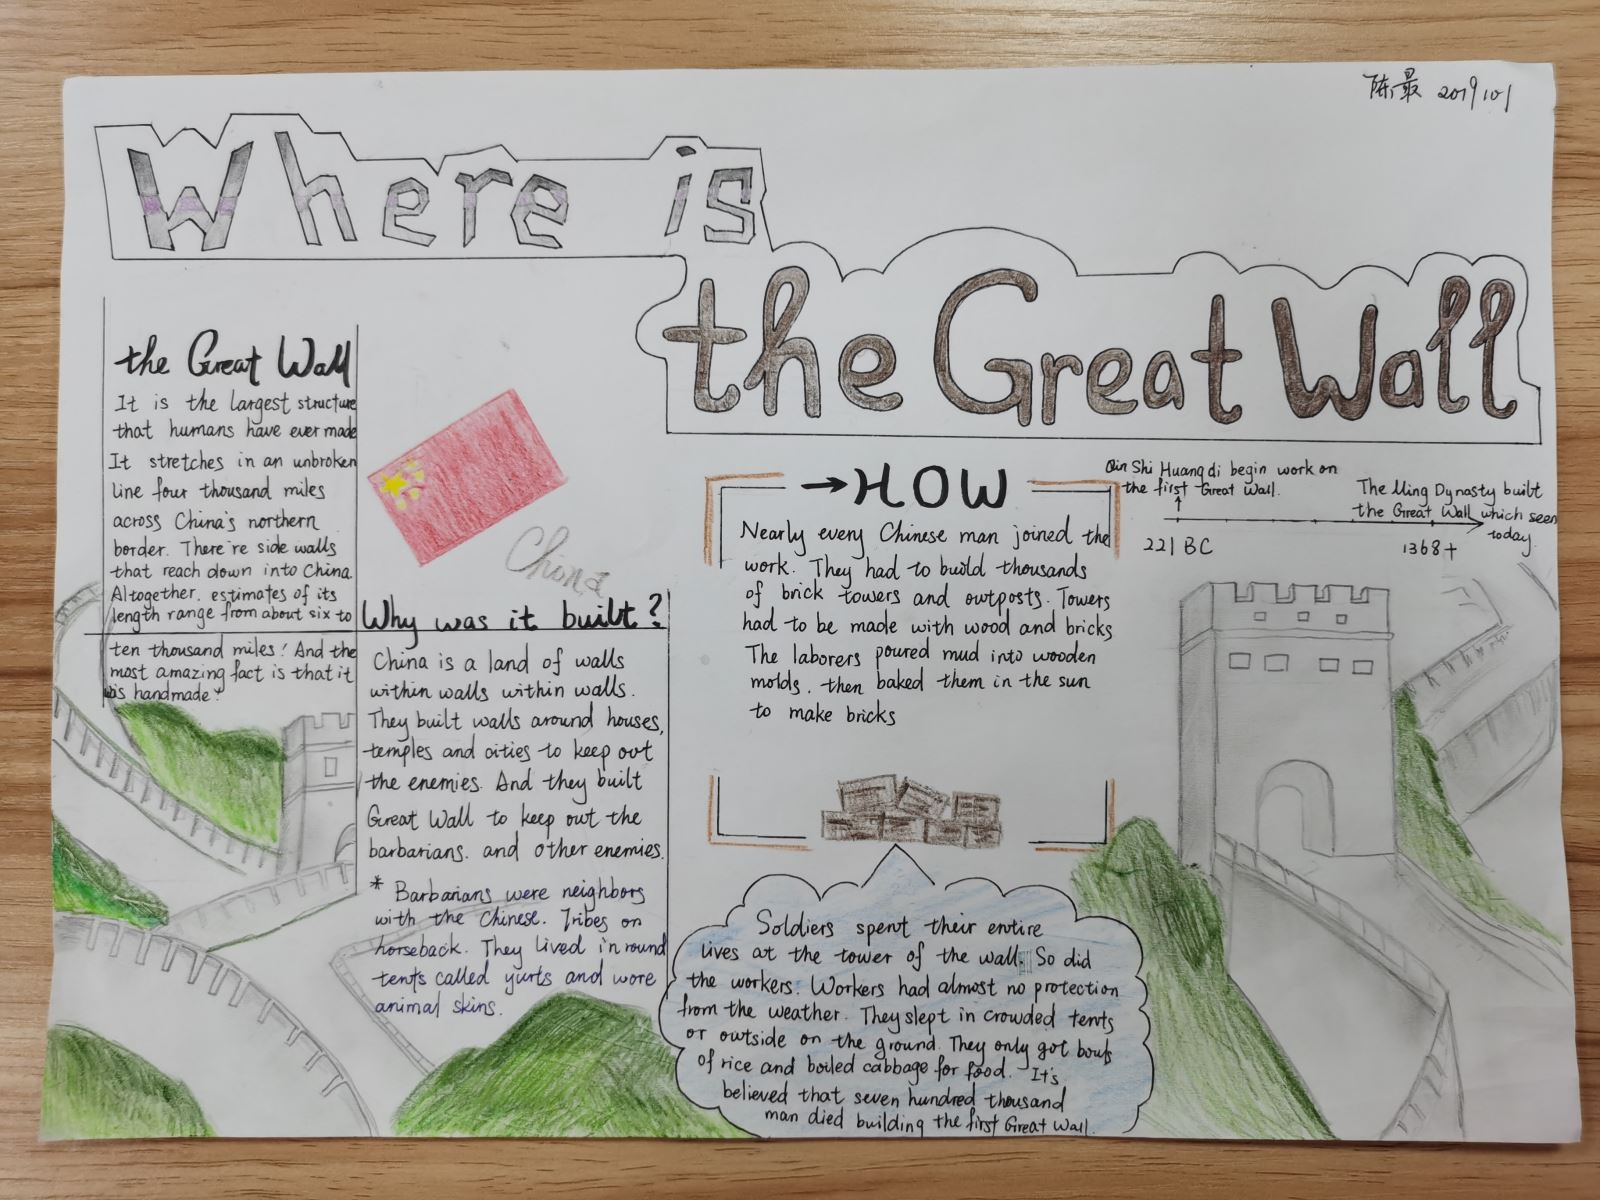 陈最 2019101
Where is
the Great Wall
the Great Wall
It is the largest structure
that humans have ever made
It stretches in an unbroken
line four thousand miles
across China's northern
border. There're side walls
that reach down into China.
Altogether. estimates of its
length range from about six to
ten thousand miles! And the
most amazing fact is that it
is handmade!
China
Why was it built?
China is a land of walls
within walls within walls.
They built walls around houses,
temples and cities to keep out
the enemies. And they built
Great Wall to keep out the
barbarians. and other enemies.
* Barbarians were neighbors
with the Chinese. Tribes on
horseback. They lived in round
tents called yurts and wore
animal skins.
→HOW
Nearly every Chinese man joined the
work. They had to build thousands
of brick towers and outposts. Towers
had to be made with wood and bricks
The laborers poured mud into wooden
molds, then baked them in the sun
to make bricks
Soldiers spent their entire
lives at the tower of the wall. So did
the workers. Workers had almost no protection
from the weather. They slept in crowded tents
or outside on the ground. They only got bowls
of rice and boiled cabbage for food. It's
believed that seven hundred thousand
man died building the first Great Wall.
Qin Shi Huangdi begin work on
the first Great Wall.
221 BC
The Ming Dynasty built
the Great Wall which seen
today.
1368+